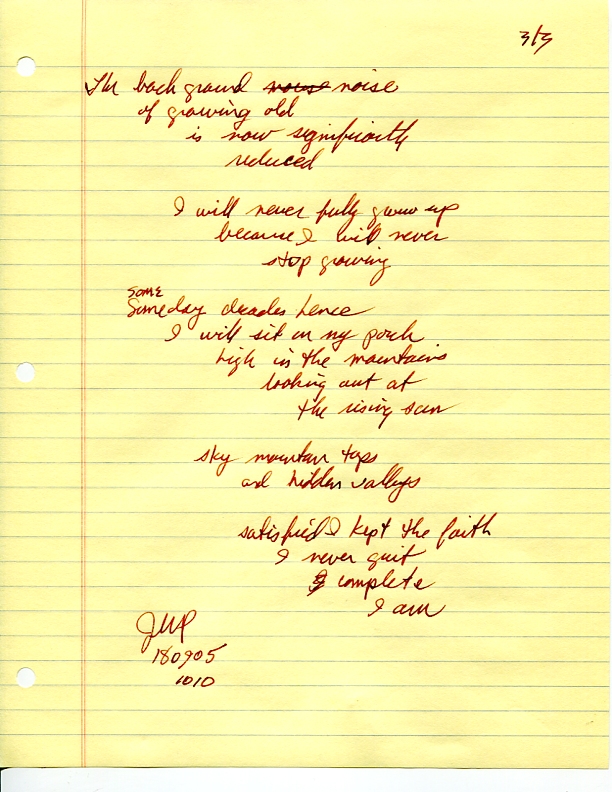 3/3
The back ground noise
of growing old
is now significantly
reduced
I will never fully grow up
because I will never
stop growing
Some
Someday decades hence
I will sit on my porch
high in the mountains
looking out at
the rising sun
sky mountain tops
and hidden valleys
satisfied I kept the faith
I never quit
complete
I am
JWP
180905
1010